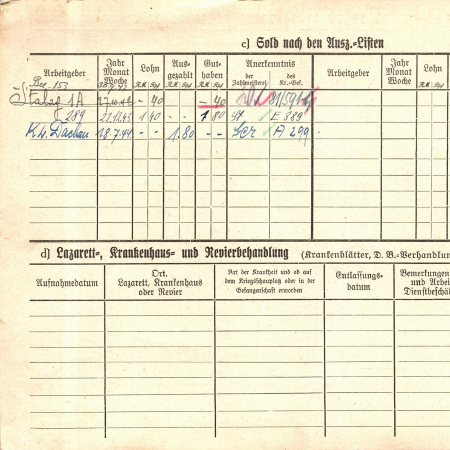 c) Sold nach den Ausz.-Listen
Arbeitgeber Jahr Monat Woche Lohn R.M. Rpf Ausgezahlt R.M. Rpf Guthaben R.M. Rpf Anerkenntnis der Zahlmeisterei des Kr.-Gef. Arbeitgeber Jahr Monat Woche Lohn R.M.
Stalag 1A - 40 - 40
289 22.12.43 1 90 - - 1 80 E 389
K.L. Dachau 28.7.44 - - 1.80 - - A 299
d) Lazarett-, Krankenhaus- und Revierbehandlung (Krankenblätter, D. B.-Verhandlun
Aufnahmedatum Ort, Lazarett, Krankenhaus oder Revier Art der Krankheit und ob auf dem Kriegsschauplatz oder in der Gefangenschaft erworben Entlassungsdatum Bemerkungen und Arbei Dienstbeschä